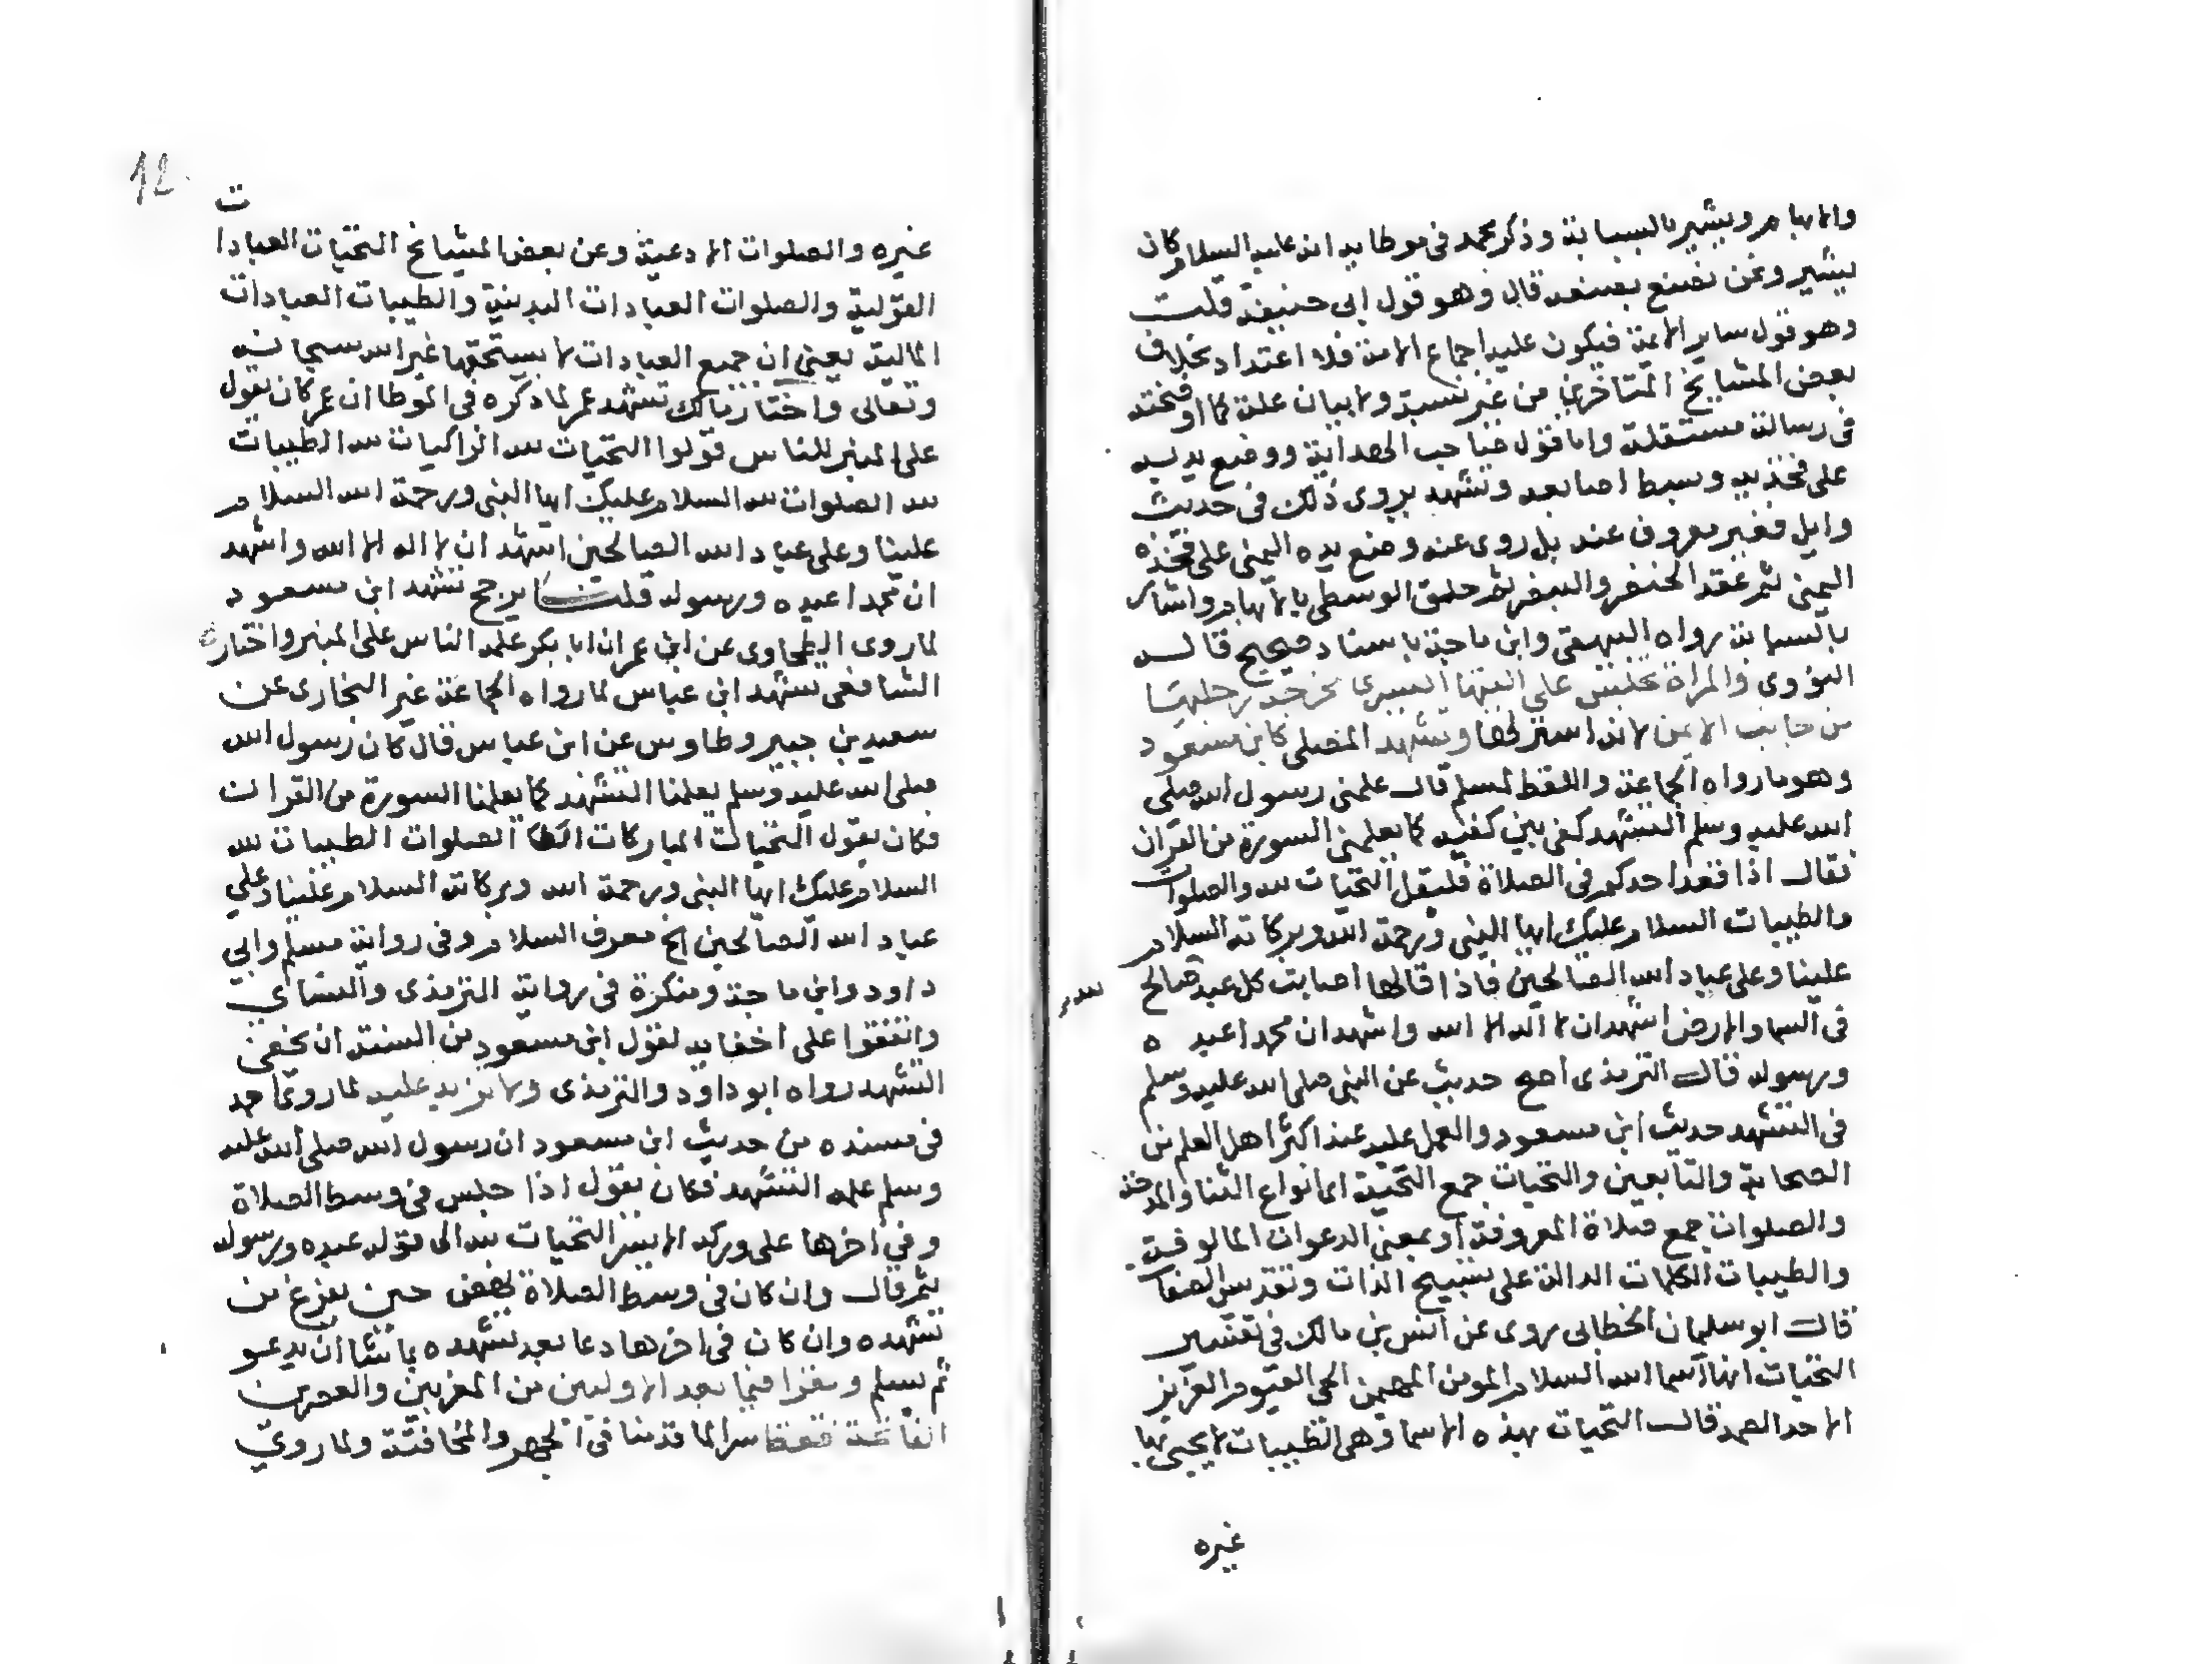 والابهام ويشير بالسبابة وذكر محمد في موطايه انه عليه السلام كان
يشير ونحن نصنع بصنعه قال وهو قول ابي حنيفة قلت
وهو قول ساير الايمة فيكون عليه اجماع الامة فلا اعتداد بخلاف
بعض المشايخ المتاخرين من غير نسبة ولا بيان علة كما اوضحته
في رسالة مستقلة واما قول صاحب الهداية ووضع يديه
على فخذيه وبسط اصابعه وتشهد يروى ذلك في حديث
وايل فغير معروف عنه بل روى عنه وضع يده اليمنى على فخذه
اليمنى ثم عقد الخنصر والبنصر ثم حلق الوسطى بالابهام واشار
بالسبابة رواه البيهقي وابن ماجة باسناد صحيح قال
النووي والمراة تجلس على اليتها اليسرى مخرجة رجليها
من جانب الايمن لانه استر لها ويتشهد المصلي كابن مسعود
وهو ما رواه الجماعة واللفظ لمسلم قال علمني رسول الله صلى
الله عليه وسلم التشهد كفي بين كفيه كما يعلمني السورة من القران
فقال اذا قعد احدكم في الصلاة فليقل التحيات لله والصلوات
والطيبات السلام عليك ايها النبي ورحمة الله وبركاته السلام
علينا وعلى عباد الله الصالحين فاذا قالها اصابت كل عبد صالح
في السما والارض اشهد ان لا اله الا الله واشهد ان محمدا عبده
ورسوله قال الترمذي اصح حديث عن النبي صلى الله عليه وسلم
في التشهد حديث ابن مسعود والعمل عليه عند اكثر اهل العلم من
الصحابة والتابعين والتحيات جمع التحية اي انواع الثنا والمدحة
والصلوات جمع صلاة المعروفة او بمعنى الدعوات المالوفة
والطيبات الكلمات الدالة على تسبيح الذات وتقدس الصفات
قال ابو سليمان الخطابي روى عن انس بن مالك في تفسير
التحيات انها اسما الله السلام المومن المهيمن الحي القيوم العزيز
الاحد الصمد قال التحيات بهذه الاسما وهي الطيبات لا يحيى بها
غيره
12
غيره والصلوات الادعية وعن بعض المشايخ التحيات العبادات
القولية والصلوات العبادات البدنية والطيبات العبادات
المالية يعني ان جميع العبادات لا يستحقها غير الله سبحانه
وتعالى واختار مالك تشهد عمر لما ذكره في الموطا ان عمر كان يقول
على المنبر للناس قولوا التحيات لله الزاكيات لله الطيبات
لله الصلوات لله السلام عليك ايها النبي ورحمة الله السلام
علينا وعلى عباد الله الصالحين اشهد ان لا اله الا الله واشهد
ان محمدا عبده ورسوله قلت يرجح تشهد ابن مسعود
لما روى الطحاوي عن ابن عمر ان ابا بكر علمه الناس على المنبر واختار
الشافعي تشهد ابن عباس لما رواه الجماعة غير البخاري عن
سعيد بن جبير وطاوس عن ابن عباس قال كان رسول الله
صلى الله عليه وسلم يعلمنا التشهد كما يعلمنا السورة من القران
فكان يقول التحيات المباركات الصلوات الطيبات لله
السلام عليك ايها النبي ورحمة الله وبركاته السلام علينا وعلى
عباد الله الصالحين الخ معرف السلام وفي رواية مسلم وابي
داود وابن ماجة ومنكرة في رواية الترمذي والنساي
واتفقوا على اخفايه لقول ابن مسعود من السنة ان يخفى
التشهد رواه ابو داود والترمذي ولا يزيد عليه لما روى احمد
في مسنده من حديث ابن مسعود ان رسول الله صلى الله عليه
وسلم علمه التشهد فكان يقول اذا جلس في وسط الصلاة
وفي اخرها على وركه الايسر التحيات لله الى قوله عبده ورسوله
ثم قال وان كان في وسط الصلاة نهض حين يفرغ من
تشهده وان كان في اخرها دعا بعد تشهده بما شا ان يدعو
ثم يسلم ويقرا فيما بعد الاوليين من المغربين والعصرين
الفاتحة فقط سرا لما قدمنا في الجهر والمخافتة ولما روي